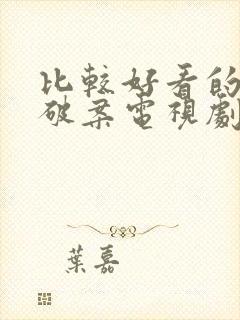 比較好看的
破案電視劇
葉嘉